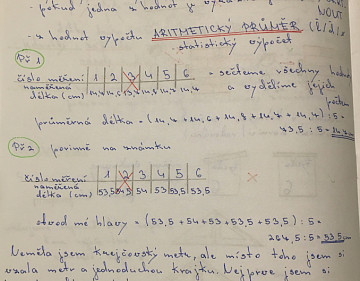 - pokud jedna z hodnot y
- z hodnot výpočtu ARITMETICKÝ PRŮMĚR
- statistický výpočet
Př 1
číslo měření 1 2 3 4 5 6 = sečteme všechny hodnoty
naměřená délka (cm) 14,4 14,6 14,7 14,4 a vydělíme jejich
počtem
průměrná délka = (14,4 + 14,6 + 14,8 + 14,7 + 14,4) : 5 =
73,5 : 5 =
Př 2 povinné na známku
číslo měření 1 2 3 4 5 6
naměřená délka (cm) 53,5 54 53 53,5 53,5
obvod mé hlavy = (53,5 + 54 + 53 + 53,5 + 53,5) : 5 =
264,5 : 5 = 53 cm
Neměla jsem krejčovský metr, ale místo toho jsem si
vzala metr a jednoduchou krajku. Nejprve jsem si